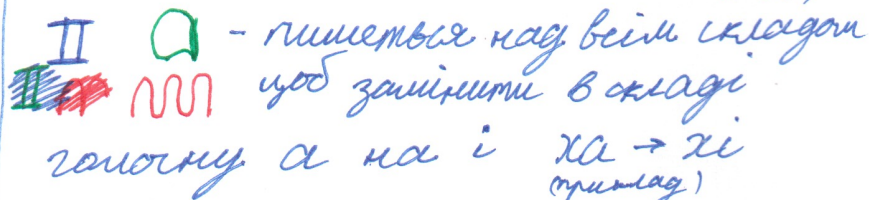 - пишеться над всім складом
щоб замінити в складі
голосну а на і ха → хі
(приклад)